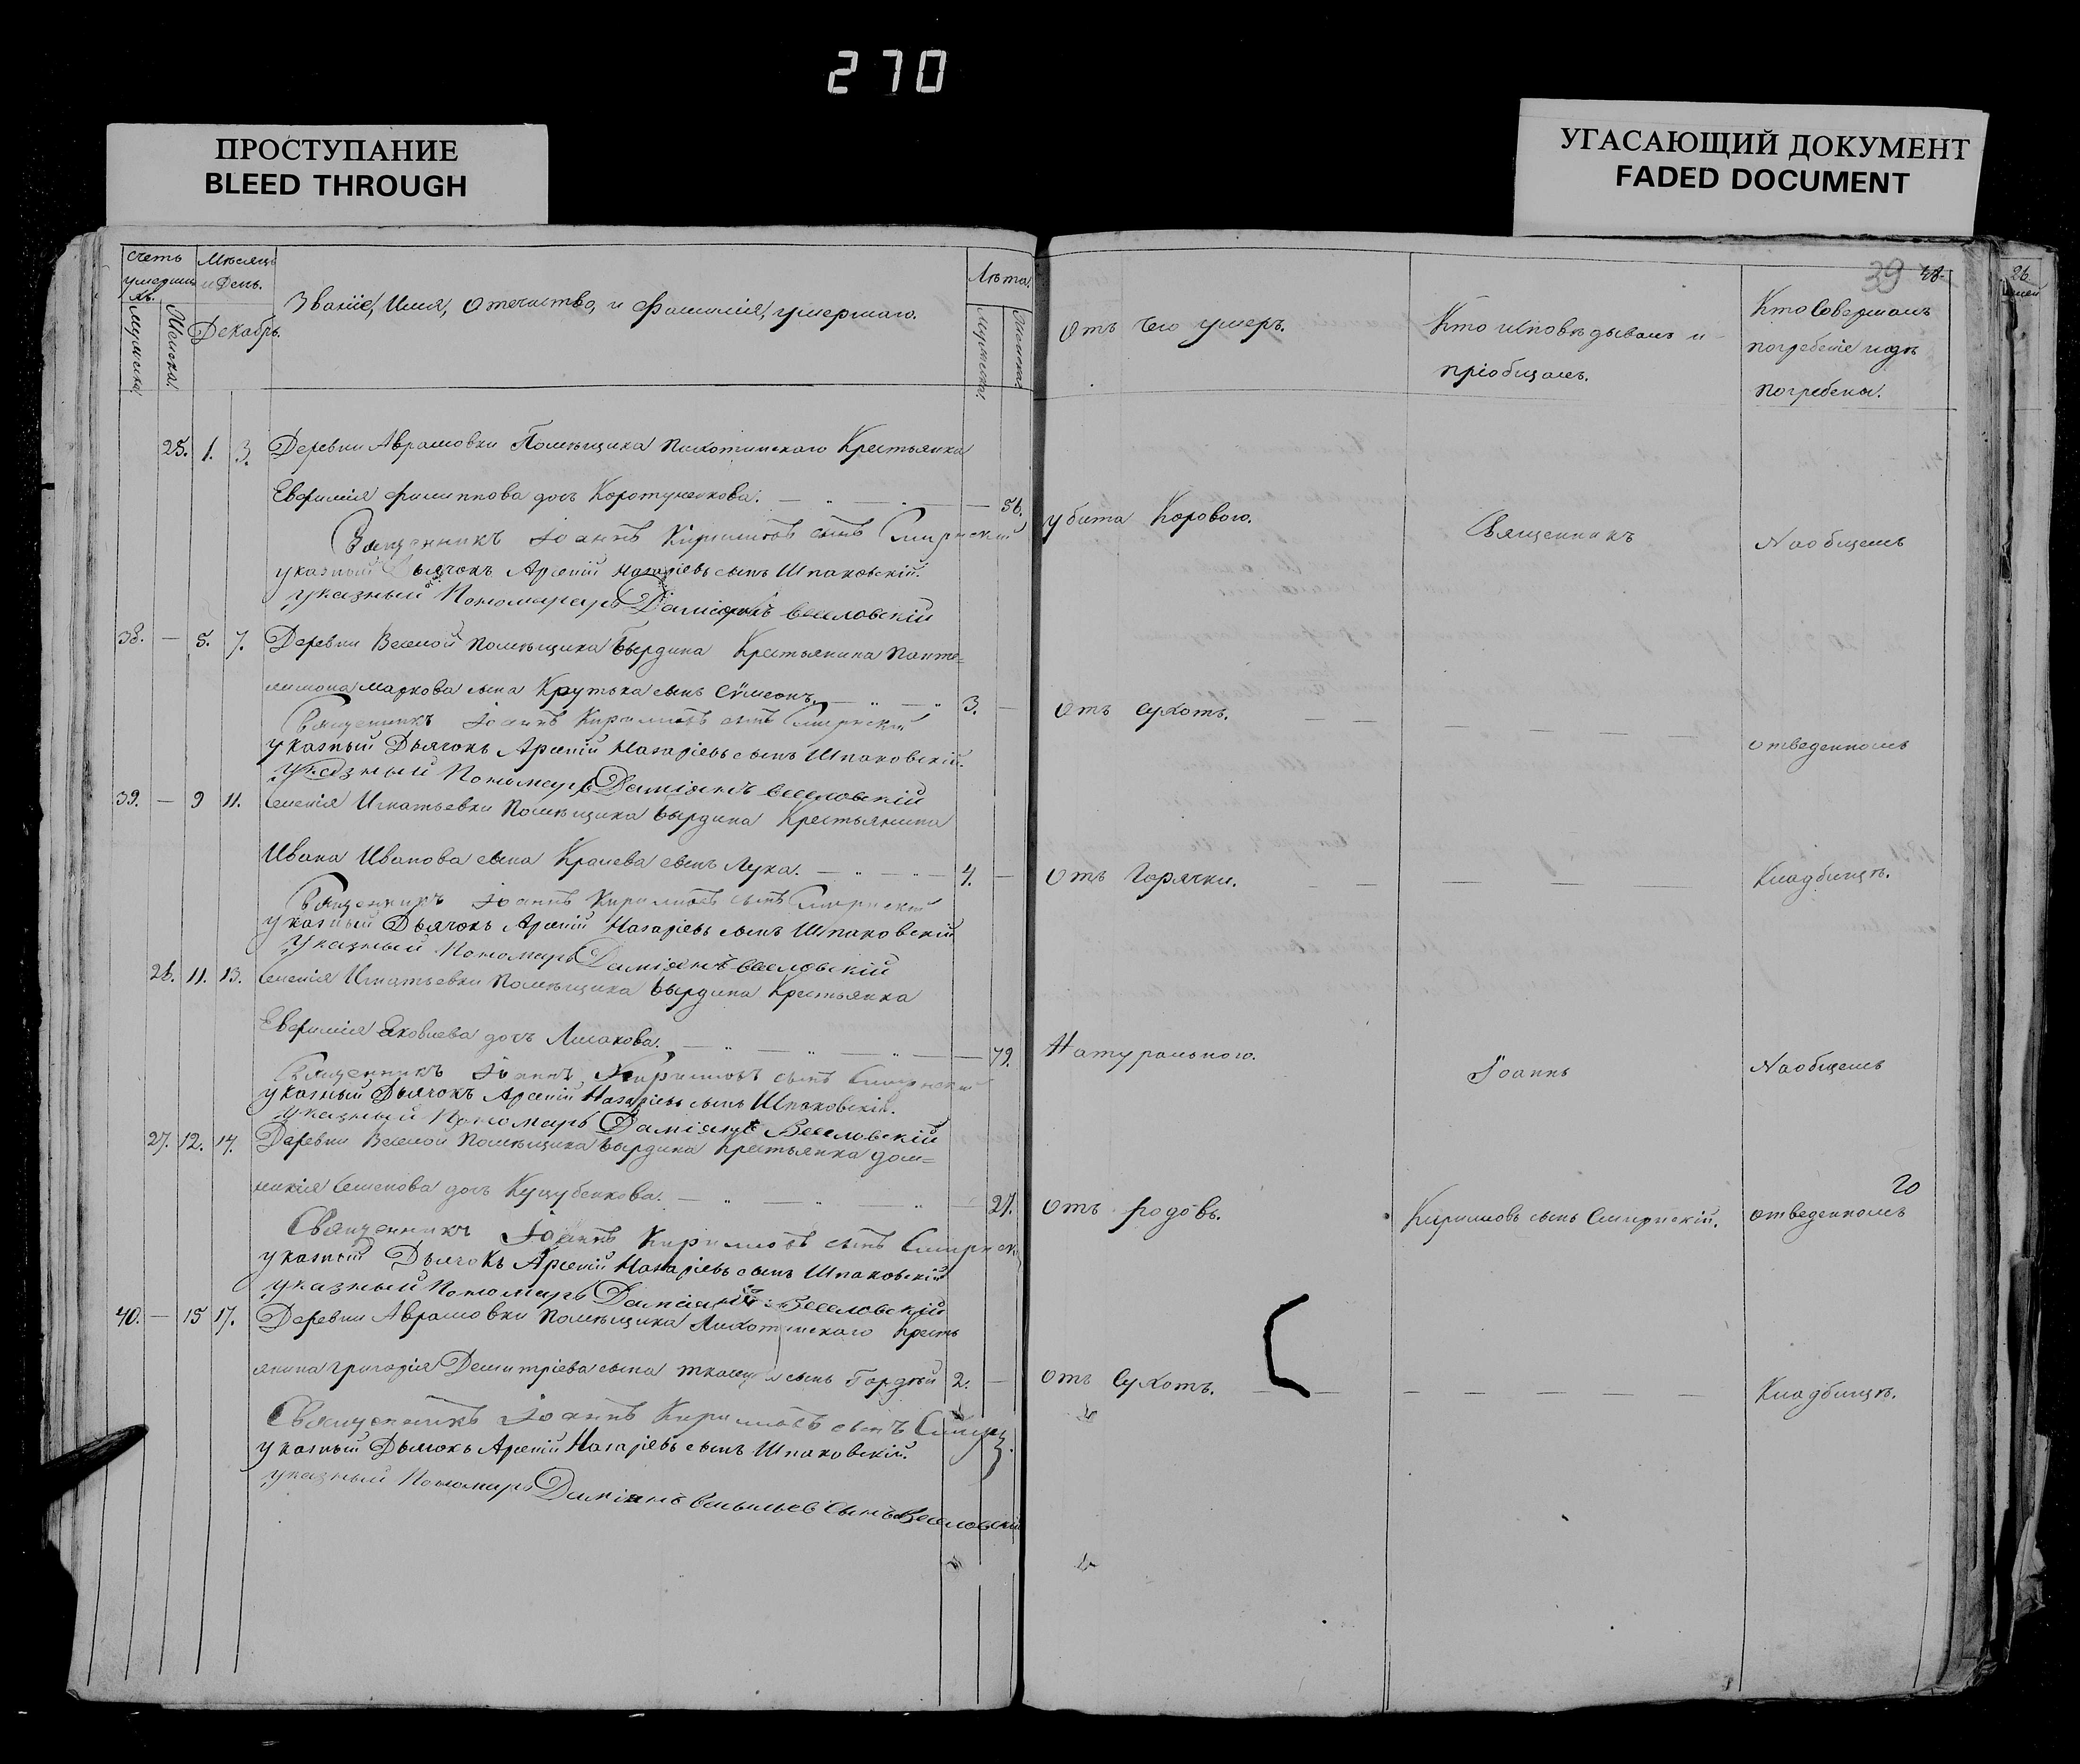 270
ПРОСТУПАНИЕ
BLEED THROUGH
УГАСАЮЩИЙ ДОКУМЕНТ
FADED DOCUMENT
Счетъ
умерши
хъ.
Мужеска
Женска
Мѣсяцъ
и День.
Декабрь.
Званіе, Имя, Отечество, и Фамилія, умершаго.
Лѣта
Мужеска
Женска
25. 1. 3. Деревни Аврамовки Помѣщика Крестьянка
Евфимія Филиппова дочь Коротуненкова. 56.
Священникъ Іоаннъ Кириловъ сынъ Смирнскій
указный Дьячокъ Арсеній Назаріевъ сынъ Шпаковскій.
указный Пономарь Даміанъ Веселовскій
38. — 5. 7. Деревни Веселой Помѣщика Бырдина Крестьянина Панте=
лимона Маркова сына Крутька сынъ Сѵмеонъ. 3. —
Священникъ Іоаннъ Кириловъ сынъ Смирнскій
указный Дьячокъ Арсеній Назаріевъ сынъ Шпаковскій.
указный Пономарь Даміанъ Веселовскій
39. — 9 11. Селенія Игнатьевки Помѣщика Бырдина Крестьянина
Ивана Иванова сына Кралева сынъ Лука. 4. —
Священникъ Іоаннъ Кириловъ сынъ Смирнскій
указный Дьячокъ Арсеній Назаріевъ сынъ Шпаковскій
указный Пономарь Даміанъ Веселовскій
26. 11. 13. Селенія Игнатьевки Помѣщика Бырдина Крестьянка
Евфимія Яковлева дочь Лисакова. 79.
Священникъ Іоаннъ Кириловъ сынъ Смирнскій
указный Дьячокъ Арсеній Назаріевъ сынъ Шпаковскій.
указный Пономарь Даміанъ Веселовскій
27. 12. 14. Деревни Веселой Помѣщика Бырдина Крестьянка Дом=
никія Семенова дочь Куцубенкова. 27.
Священникъ Іоаннъ Кириловъ сынъ Смирнск
указный Дьячокъ Арсеній Назаріевъ сынъ Шпаковскій
указный Пономарь Даміанъ Веселовскій
40. — 15 17. Деревни Аврамовки Помѣщика Крестъ
янина Григорія Демитріева сына сынъ Гордѣй 2. —
Священникъ Іоаннъ Кириловъ сынъ
указный Дьячокъ Арсеній Назаріевъ сынъ Шпаковскій.
указный Пономарь Даміанъ Васильевъ сынъ Веселовскій
39
Отъ чего умеръ.
Кто исповѣдывалъ и
пріобщалъ.
Кто Совершалъ
погребеніе и гдѣ
погребены.
убита Коровою.
Священникъ
На общемъ
Отъ Сухотъ.
отведенномъ
Отъ Горячки.
Кладбищѣ.
Натуральною.
Іоаннъ
На общемъ
20
Отъ родовъ.
Кириловъ сынъ Смирнскій.
отведенномъ
Отъ Сухотъ.
Кладбищѣ.
26